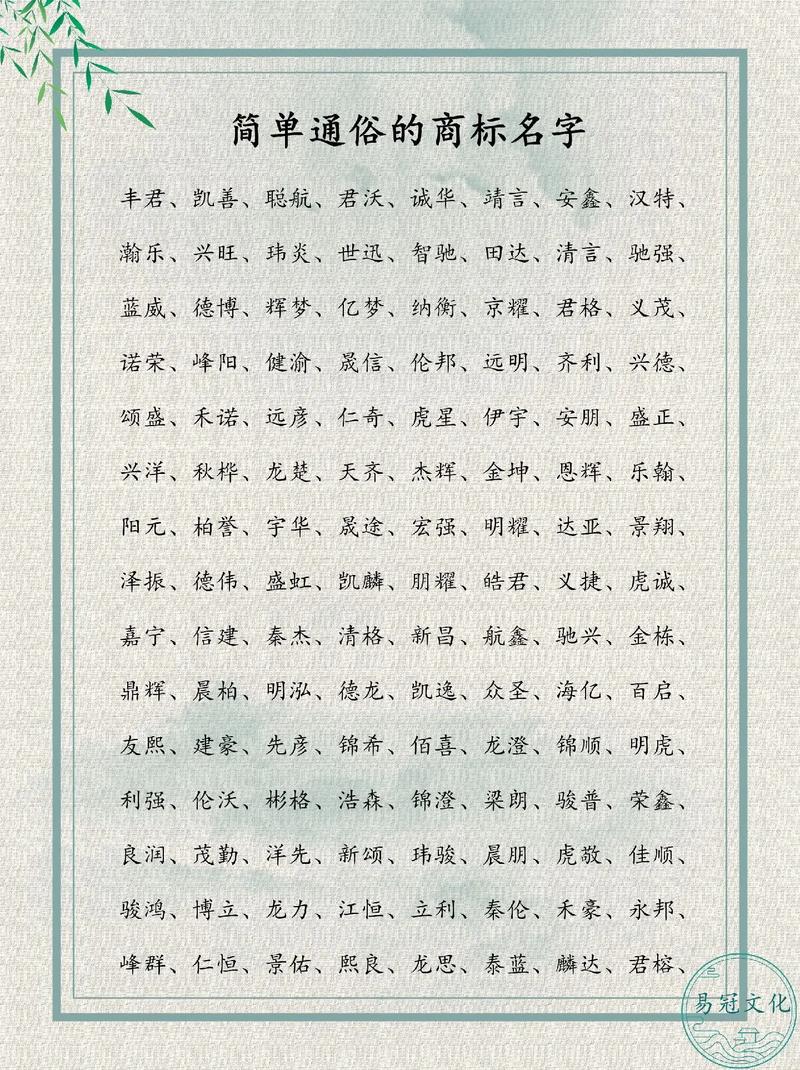 简单通俗的商标名字
丰君、凯善、聪航、君沃、诚华、靖言、安鑫、汉特、
瀚乐、兴旺、玮炎、世迅、智驰、田达、清言、驰强、
蓝威、德博、辉梦、亿梦、纳衡、京耀、君格、义茂、
诺荣、峰阳、健渝、晟信、伦邦、远明、齐利、兴德、
颂盛、禾诺、远彦、仁奇、虎星、伊宇、安朋、盛正、
兴洋、秋桦、龙楚、天齐、杰辉、金坤、恩辉、乐翰、
阳元、柏誉、宇华、晟途、宏强、明耀、达亚、景翔、
泽振、德伟、盛虹、凯麟、朋耀、皓君、义捷、虎诚、
嘉宁、信建、秦杰、清格、新昌、航鑫、驰兴、金栋、
鼎辉、晨柏、明泓、德龙、凯逸、众圣、海亿、百启、
友熙、建豪、先彦、锦希、佰喜、龙澄、锦顺、明虎、
利强、伦沃、彬格、浩森、锦澄、梁朗、骏普、荣鑫、
良润、茂勤、洋先、新颂、玮骏、晨朋、虎敬、佳顺、
骏鸿、博立、龙力、江恒、立利、秦伦、禾豪、永邦、
峰群、仁恒、景佑、熙良、龙思、泰蓝、麟达、君榕、
易冠文化